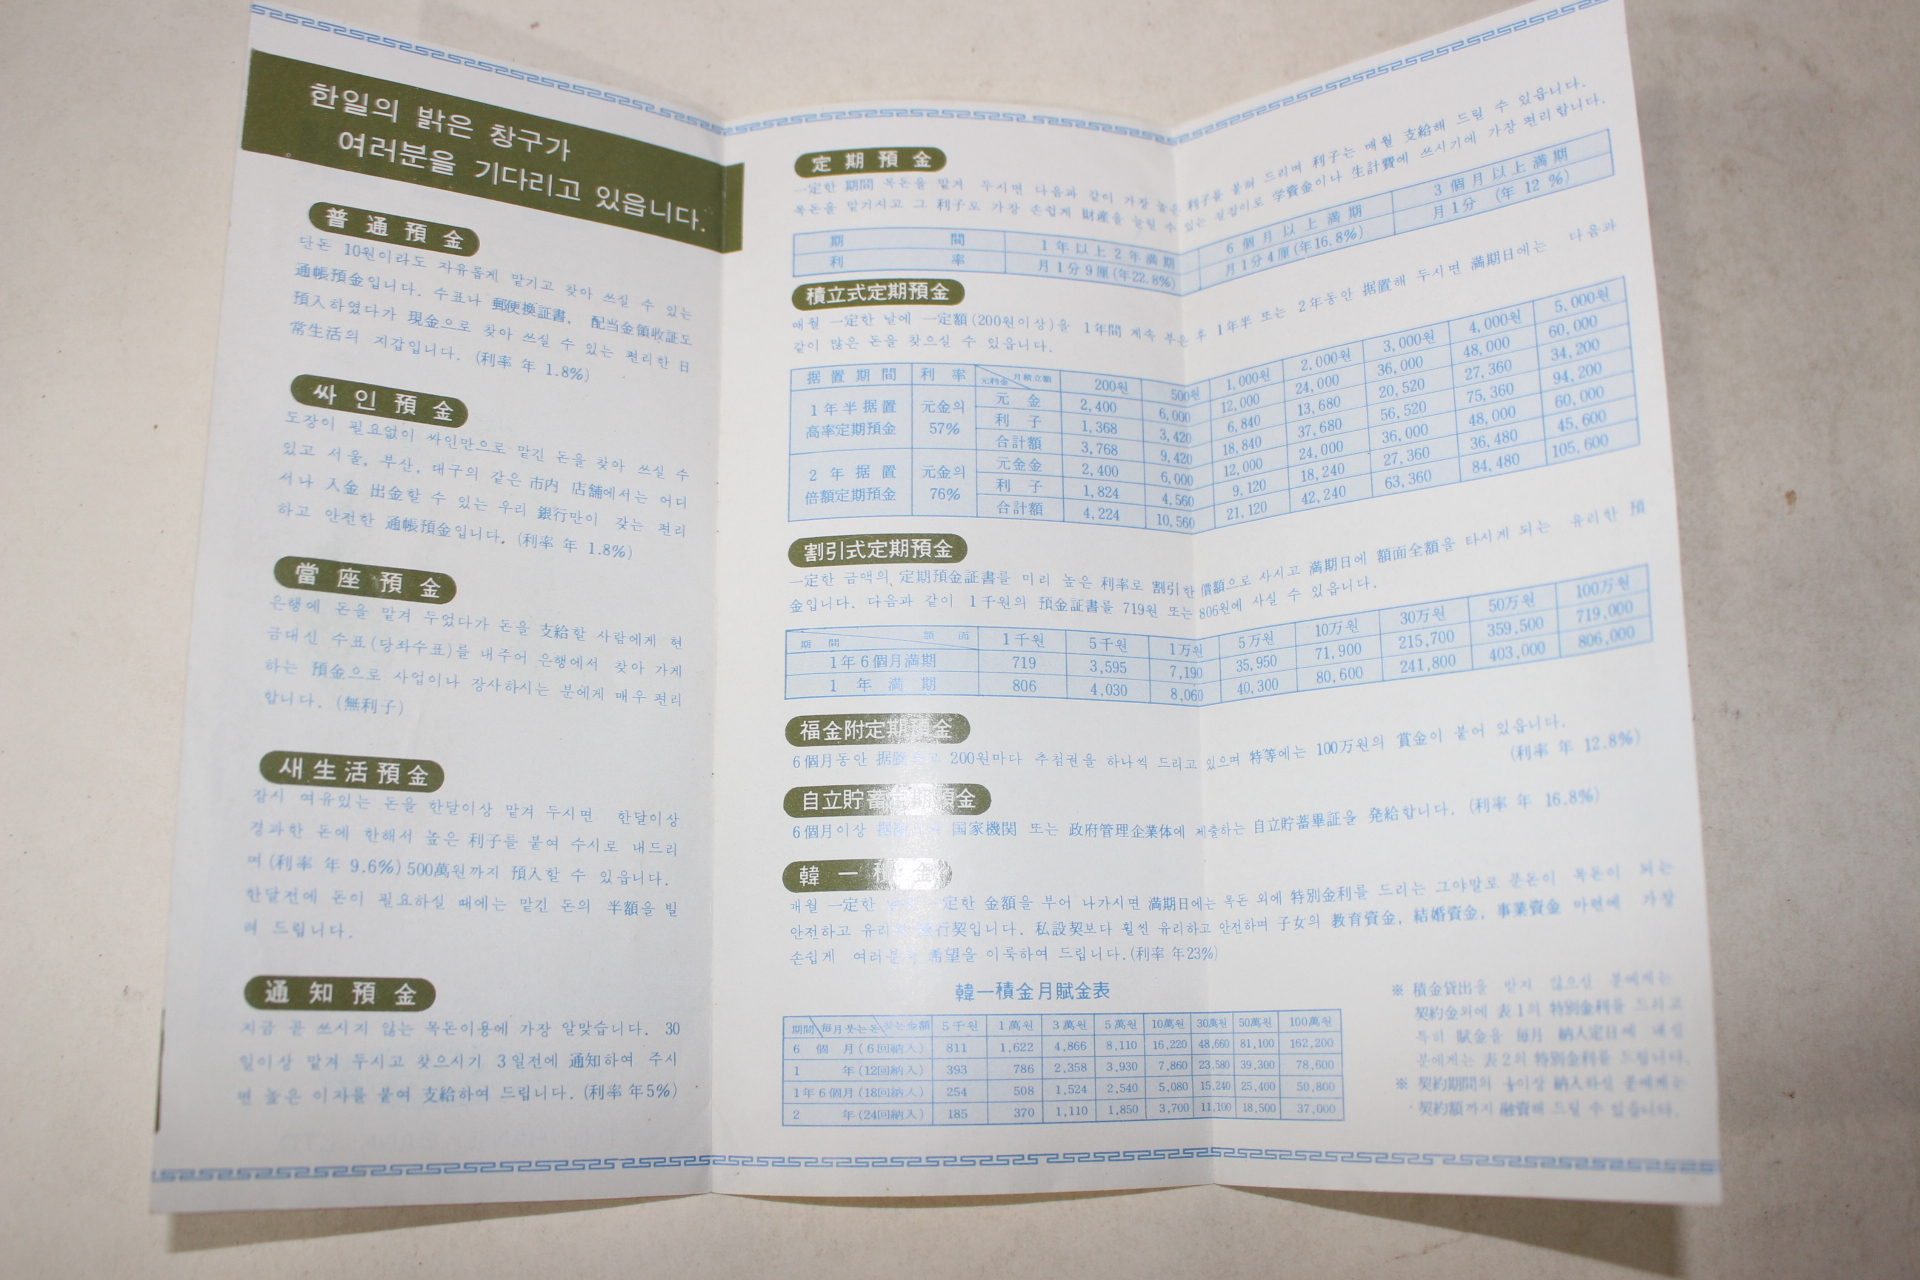 한일의 밝은 창구가
여러분을 기다리고 있읍니다.
普通預金
단돈 10원이라도 자유롭게 맡기고 찾아 쓰실 수 있는
通帳預金입니다. 수표나 郵便換証書, 配当金領收証도
預入하였다가 現金으로 찾아 쓰실 수 있는 편리한 日
常生活의 지갑입니다. (利率 年 1.8%)
싸인預金
도장이 필요없이 싸인만으로 맡긴 돈을 찾아 쓰실 수
있고 서울, 부산, 대구의 같은 市内 店舗에서는 어디
서나 入金 出金할 수 있는 우리 銀行만이 갖는 편리
하고 안전한 通帳預金입니다. (利率 年 1.8%)
當座預金
은행에 돈을 맡겨 두었다가 돈을 支給할 사람에게 현
금대신 수표(당좌수표)를 내주어 은행에서 찾아 가게
하는 預金으로 사업이나 장사하시는 분에게 매우 편리
합니다. (無利子)
새生活預金
잠시 여유있는 돈을 한달이상 맡겨 두시면 한달이상
경과한 돈에 한해서 높은 利子를 붙여 수시로 내드리
며(利率 年 9.6%) 500萬원까지 預入할 수 있읍니다.
한달전에 돈이 필요하실 때에는 맡긴 돈의 半額을 빌
려 드립니다.
通知預金
지금 곧 쓰시지 않는 목돈이용에 가장 알맞습니다. 30
일이상 맡겨 두시고 찾으시기 3일전에 通知하여 주시
면 높은 이자를 붙여 支給하여 드립니다. (利率 年5%)
定期預金
一定한 期間 목돈을 맡겨 두시면 다음과 같이 가장 높은 利子를 붙혀 드리며 利子는 매월 支給해 드릴 수 있읍니다.
목돈을 맡기시고 그 利子도 가장 손쉽게 財産을 늘릴 수 있는 실정이로 学資金이나 生計費에 쓰시기에 가장 편리합니다.
期間 1年以上2年満期 6個月以上満期 3個月以上満期
利率 月1分9厘(年22.8%) 月1分4厘(年16.8%) 月1分 (年 12 %)
積立式定期預金
매월 一定한 날에 一定額(200원이상)을 1年間 계속 부은 후 1年半 또는 2年동안 据置해 두시면 満期日에는 다음과
같이 많은 돈을 찾으실 수 있읍니다.
据置期間 利率 元利金 月積立額 200원 500원 1,000원 2,000원 3,000원 4,000원 5,000원
1年半据置 高率定期預金 元金의 57% 元金 2,400 6,000 12,000 24,000 36,000 48,000 60,000
利子 1,368 3,420 6,840 13,680 20,520 27,360 34,200
合計額 3,768 9,420 18,840 37,680 56,520 75,360 94,200
2年据置 倍額定期預金 元金의 76% 元金金 2,400 6,000 12,000 24,000 36,000 48,000 60,000
利子 1,824 4,560 9,120 18,240 27,360 36,480 45,600
合計額 4,224 10,560 21,120 42,240 63,360 84,480 105,600
割引式定期預金
一定한 금액의, 定期預金証書를 미리 높은 利率로 割引한 價額으로 사시고 満期日에 額面全額을 타시게 되는 유리한 預
金입니다. 다음과 같이 1千원의 預金証書를 719원 또는 806원에 사실 수 있읍니다.
期間 額面 1千원 5千원 1万원 5万원 10万원 30万원 50万원 100万원
1年6個月満期 719 3,595 7,190 35,950 71,900 215,700 359,500 719,000
1年満期 806 4,030 8,060 40,300 80,600 241,800 403,000 806,000
福金附定期預金
6個月동안 据置 200원마다 추첨권을 하나씩 드리고 있으며 特等에는 100万원의 賞金이 붙어 있읍니다.
(利率 年 12.8%)
自立貯蓄定期預金
6個月이상 国家機関 또는 政府管理企業体에 제출하는 自立貯蓄畢証을 発給합니다. (利率 年 16.8%)
韓一積金
개월 一定한 一定한 金額을 부어 나가시면 満期日에는 목돈 외에 特別金利를 드리는 그야말로 푼돈이 목돈이 되는
안전하고 유리 銀行契입니다. 私設契보다 훨씬 유리하고 안전하며 子女의 教育資金, 結婚資金, 事業資金 마련에 가장
손쉽게 여러분의 希望을 이룩하여 드립니다.(利率 年23%)
韓一積金月賦金表
期間 毎月붓는돈 찾는金額 5千원 1萬원 3萬원 5萬원 10萬원 30萬원 50萬원 100萬원
6個月(6回納入) 811 1,622 4,866 8,110 16,220 48,660 81,100 162,200
1年(12回納入) 393 786 2,358 3,930 7,860 23,580 39,300 78,600
1年6個月(18回納入) 254 508 1,524 2,540 5,080 15,240 25,400 50,800
2年(24回納入) 185 370 1,110 1,850 3,700 11,100 18,500 37,000
※ 積金貸出을 받지 않으실 분에게는
契約金외에 表1의 特別金利를 드리고
특히 賦金을 毎月 納入定日에 내실
분에게는 表2의 特別金利를 드립니다.
※ 契約期間의 ⅓이상 納入하실 분에게는
契約額까지 融資해 드릴 수 있읍니다.